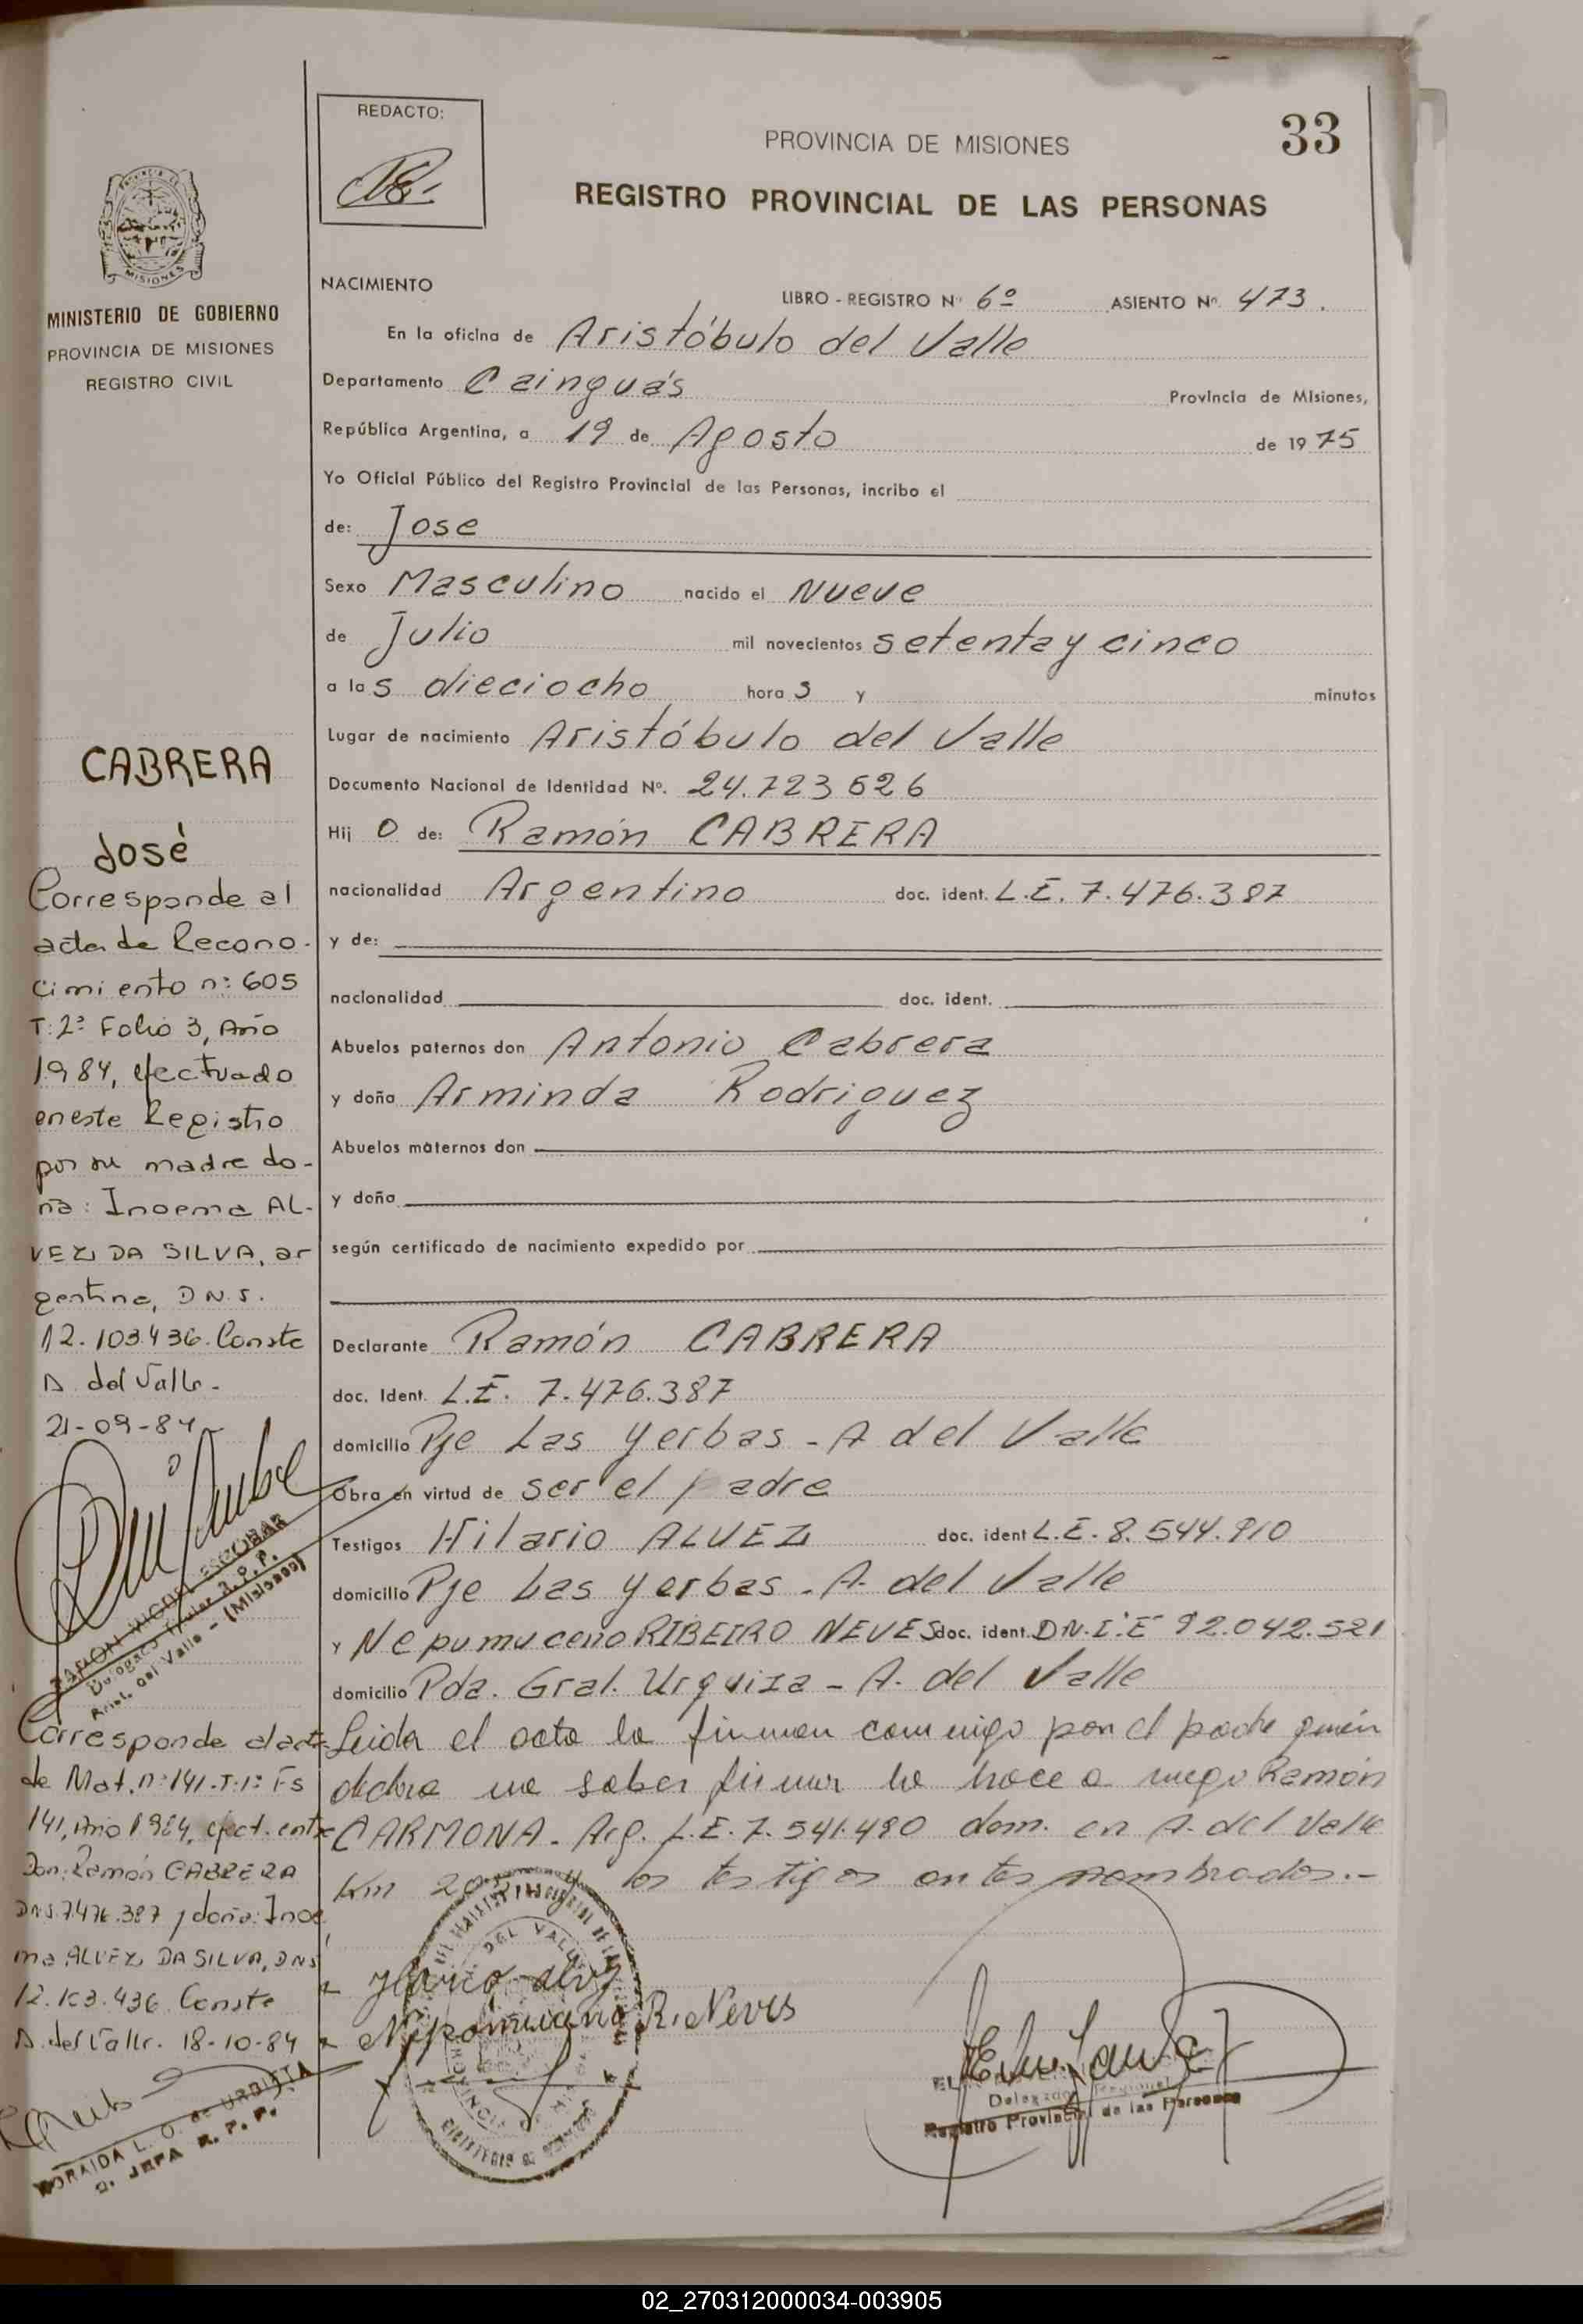 REDACTO:
33
PROVINCIA DE MISIONES
REGISTRO PROVINCIAL DE LAS PERSONAS
MISIONES
MINISTERIO DE GOBIERNO
PROVINCIA DE MISIONES
REGISTRO CIVIL
NACIMIENTO
LIBRO - REGISTRO Nº 6º ASIENTO Nº. 473.
En la oficina de Aristóbulo del Valle
Departamento Cainguás Provincia de Misiones,
República Argentina, a 19 de Agosto de 1975
Yo Oficial Público del Registro Provincial de las Personas, incribo el
de: Jose
Sexo Masculino nacido el Nueve
de Julio mil novecientos setenta y cinco
a las dieciocho horas y minutos
Lugar de nacimiento Aristóbulo del Valle
Documento Nacional de Identidad Nº. 24.723626
Hijo de: Ramón CABRERA
nacionalidad Argentino doc. ident. L.E. 7.476.387
y de:
nacionalidad doc. ident.
Abuelos paternos don Antonio Cabrera
y doña Arminda Rodriguez
Abuelos maternos don
y doña
según certificado de nacimiento expedido por
Declarante Ramón CABRERA
doc. Ident. L.E. 7.476.387
domicilio Pje Las Yerbas - A del Valle
Obra en virtud de ser el padre
Testigos Hilario ALVEZ doc. ident L.E. 8.544.910
domicilio Pje Las Yerbas - A. del Valle
y Nepumuceno RIBEIRO NEVES doc. ident. D.N.I.E 92.042.521
domicilio Pda. Gral. Urquiza - A. del Valle
Leida el acta la firman conmigo por el padre quién
declara no saber firmar lo hace a ruego Ramón
CARMONA - Arg. L.E. 7.541.490 dom. en A. del Valle
Km los testigos antes nombrados.-
Hilario alvez
Nepomuceno R. Neves
Delegado Regional
Registro Provincial de las Personas
CABRERA
José
Corresponde al
acta de Recono-
cimiento nº: 605
T: 2º Folio 3, Año
1984, efectuado
en este Registro
por su madre do-
ña: Inoema AL-
VEZ DA SILVA, ar
gentina, D.N.I.
12.103.436. Conste
A. del Valle -
21-09-84
RAMON MIGUEL ESCOBAR
Delegado Titular R.P.P.
Arist. Del Valle - (Misiones)
Corresponde al acta
de Mat. nº: 141-T: 1º Fs
141, Año 1984, efect. entre
Don: Ramón CABRERA
DNI. 7.476.387 y doña: Inoe
ma ALVEZ DA SILVA, DNI
12.103.436. Conste
A. del Valle. 18-10-84
ZORAIDA L. O. de URDIETA
JEFA R. P. P.
02_270312000034-003905